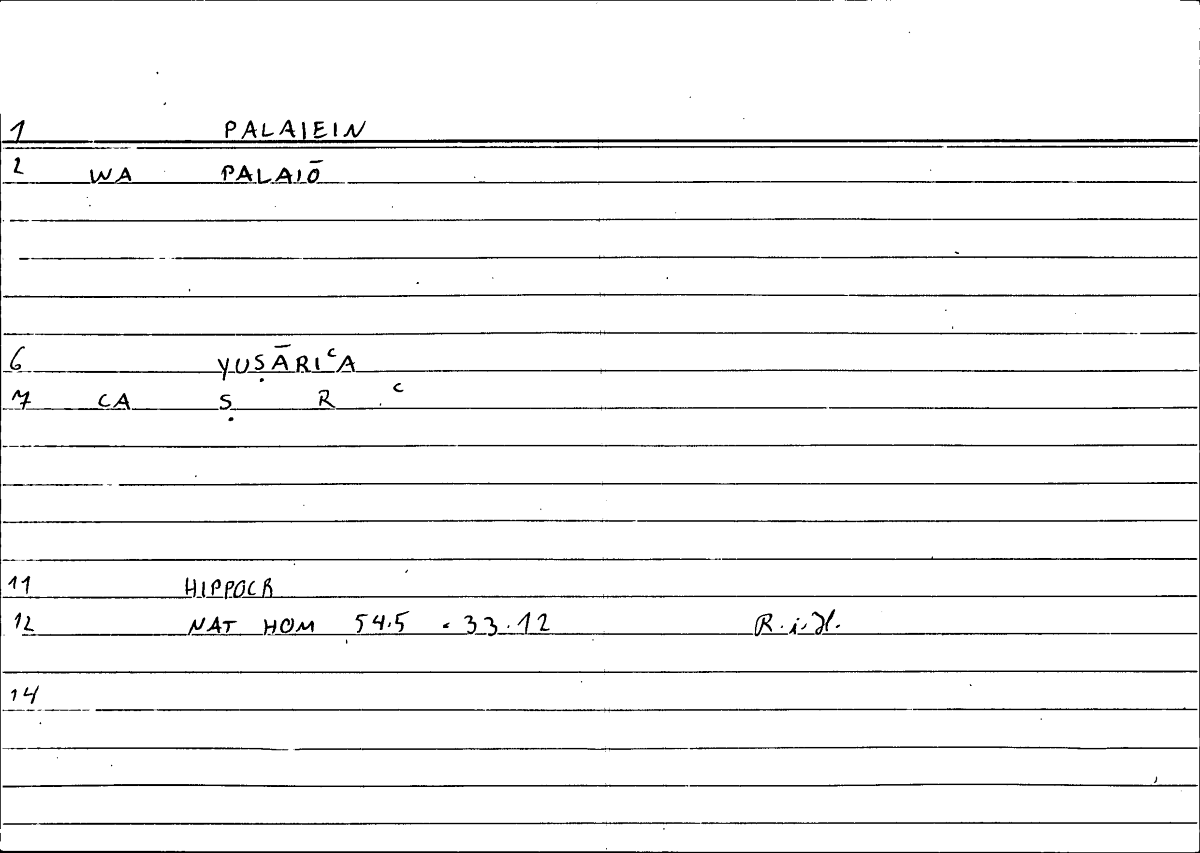 1 PALAIEIN
2 WA PALAIŌ
6 YUṢĀRIᶜA
7 CA Ṣ R ᶜ
11 HIPPOCR
12 NAT HOM 54.5 = 33.12 R.i.H.
14